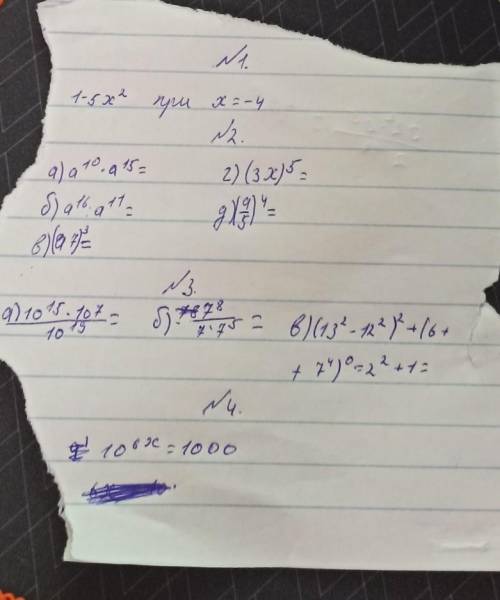 №1.
1-5x² при x=-4
№2.
а) a¹⁰·a¹⁵= г) (3x)⁵=
б) a¹⁶·a¹¹= д) (a/5)⁴=
в) (a7)³=
№3.
а) 10¹⁵·10⁷/10¹⁹= б) 7⁸/7·7⁵= в) (13²-12²)²+(6+
+ 7⁴)⁰=2²+1=
№4.
10⁶ˣ=1000